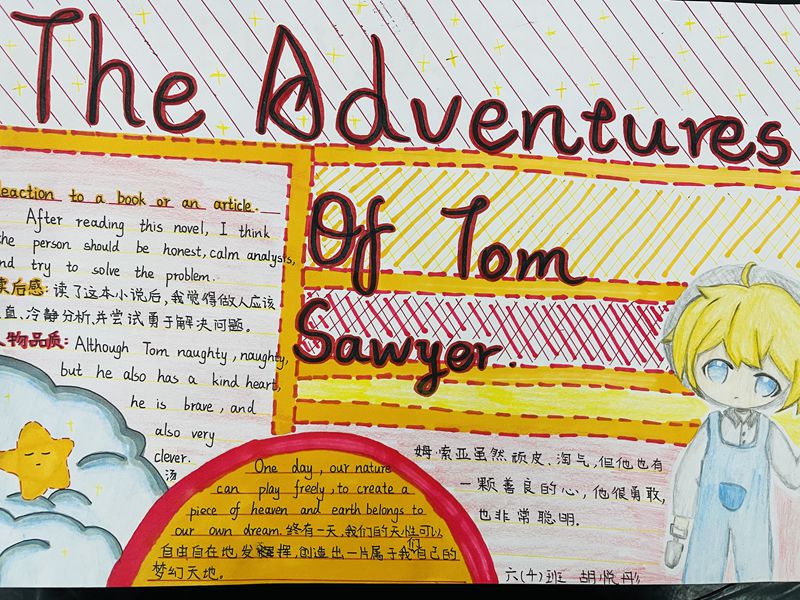 The Adventures
Of Tom
Sawyer.
Reaction to a book or an article.
After reading this novel, I think
the person should be honest, calm analysis,
and try to solve the problem.
读后感:读了这本小说后,我觉得做人应该
直、冷静分析,并尝试勇于解决问题。
人物品质: Although Tom naughty, naughty,
but he also has a kind heart,
he is brave, and
also very
clever.
汤
姆·索亚虽然顽皮、淘气,但他也有
一颗善良的心,他很勇敢,
也非常聪明.
One day, our nature
can play freely, to create a
piece of heaven and earth belongs to
our own dream. 终有一天,我们的天性可以
自由自在地,发挥,创造出一片属于我们自己的
梦幻天地。
六(4)班 胡悦彤